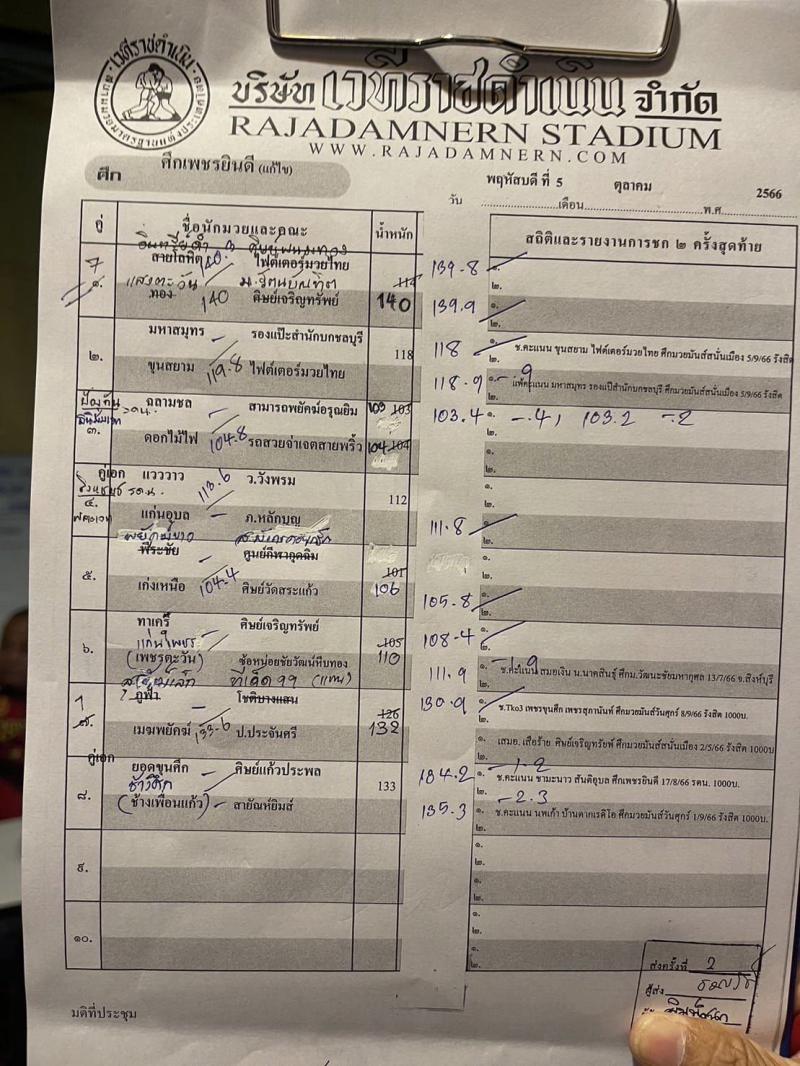 เวทีราชดำเนิน
บริษัท เวทีราชดำเนิน จำกัด
RAJADAMNERN STADIUM
WWW.RAJADAMNERN.COM
ศึก ศึกเพชรยินดี (แก้ไข)
พฤหัสบดี ที่ 5 ตุลาคม 2566
วัน เดือน พ.ศ.
คู่ ชื่อนักมวยและคณะ น้ำหนัก สถิติและรายงานการชก ๒ ครั้งสุดท้าย
สายโลหิต ไฟต์เตอร์มวยไทย 139.8 ๑.
7 ๑. แสงตะวัน 140 ๒.
ทอง 140 ศิษย์เจริญทรัพย์ 140 139.9 ๑.
๒.
มหาสมุทร รองแป๊ะสำนักบกชลบุรี 118 ๑. ช.คะแนน ขุนสยาม ไฟต์เตอร์มวยไทย ศึกมวยมันส์สนั่นเมือง 5/9/66 รังสิต
๒. 118 ๒.
ขุนสยาม 119.8 ไฟต์เตอร์มวยไทย 118.9 ๑. แพ้คะแนน มหาสมุทร รองแป๊ะสำนักบกชลบุรี ศึกมวยมันส์สนั่นเมือง 5/9/66 รังสิต
ฉลามชล สามารถพยัคฆ์อรุณยิม 103 103.4 ๑. -.4, 103.2 -.2
๓. ๒.
ดอกไม้ไฟ 104.8 รถสวยจ่าเจตสายพริ้ว 104 ๑.
๒.
คู่เอก แวววาว ว.วังพรม ๑.
๔. 113.6 112 ๒.
แก่นอุบล ภ.หลักบุญ 111.8 ๑.
๒.
พีระชัย ศูนย์กีฬากุดฉิม 101 ๑.
๕. 106 ๒.
เก่งเหนือ 104.4 ศิษย์วัดสระแก้ว 105.8 ๑.
๒.
ทาเครี้ ศิษย์เจริญทรัพย์ 105 108.4 ๑.
๖. แก่นเพชร 110 ๒.
(เพชรตะวัน) ซ้อหน่อยชัยวัฒน์หีบทอง 111.9 ๑. ช.คะแนน สมอเงิน น.นาคสินธุ์ ศึกม.วัฒนะชัยมหากุศล 13/7/66 จ.สิงห์บุรี
ทีเด็ด 99 (แทน) ๒.
ภูฟ้า โชติบางแสน 126 130.9 ๑. ช.Tko3 เพชรขุนศึก เพชรสุภานันท์ ศึกมวยมันส์วันศุกร์ 8/9/66 รังสิต 1000บ.
๗. 132 ๒.
เมฆพยัคฆ์ 133.6 ป.ประจันศรี เสมอ. เสือร้าย ศิษย์เจริญทรัยพ์ ศึกมวยมันส์สนั่นเมือง 2/5/66 รังสิต 1000บ
คู่เอก
ยอดขุนศึก ศิษย์แก้วประพล 134.2 ๑. -1.2
๘. ช้างศึก 133 ช.คะแนน ชามะนาว สันติอุบล ศึกเพชรยินดี 17/8/66 รดน. 1000บ.
๒. -2.3
(ช้างเพื่อนแก้ว) สายัณห์ยิมส์ 135.3 ๑. ช.คะแนน นพเก้า บ้านตากเรดิโอ ศึกมวยมันส์วันศุกร์ 1/9/66 รังสิต 1000บ.
๒.
๙. ๑.
๒.
๑.
๒.
๑๐. ๑.
๒.
๑.
๒.
มติที่ประชุม
ส่งครั้งที่ 2
ผู้ส่ง